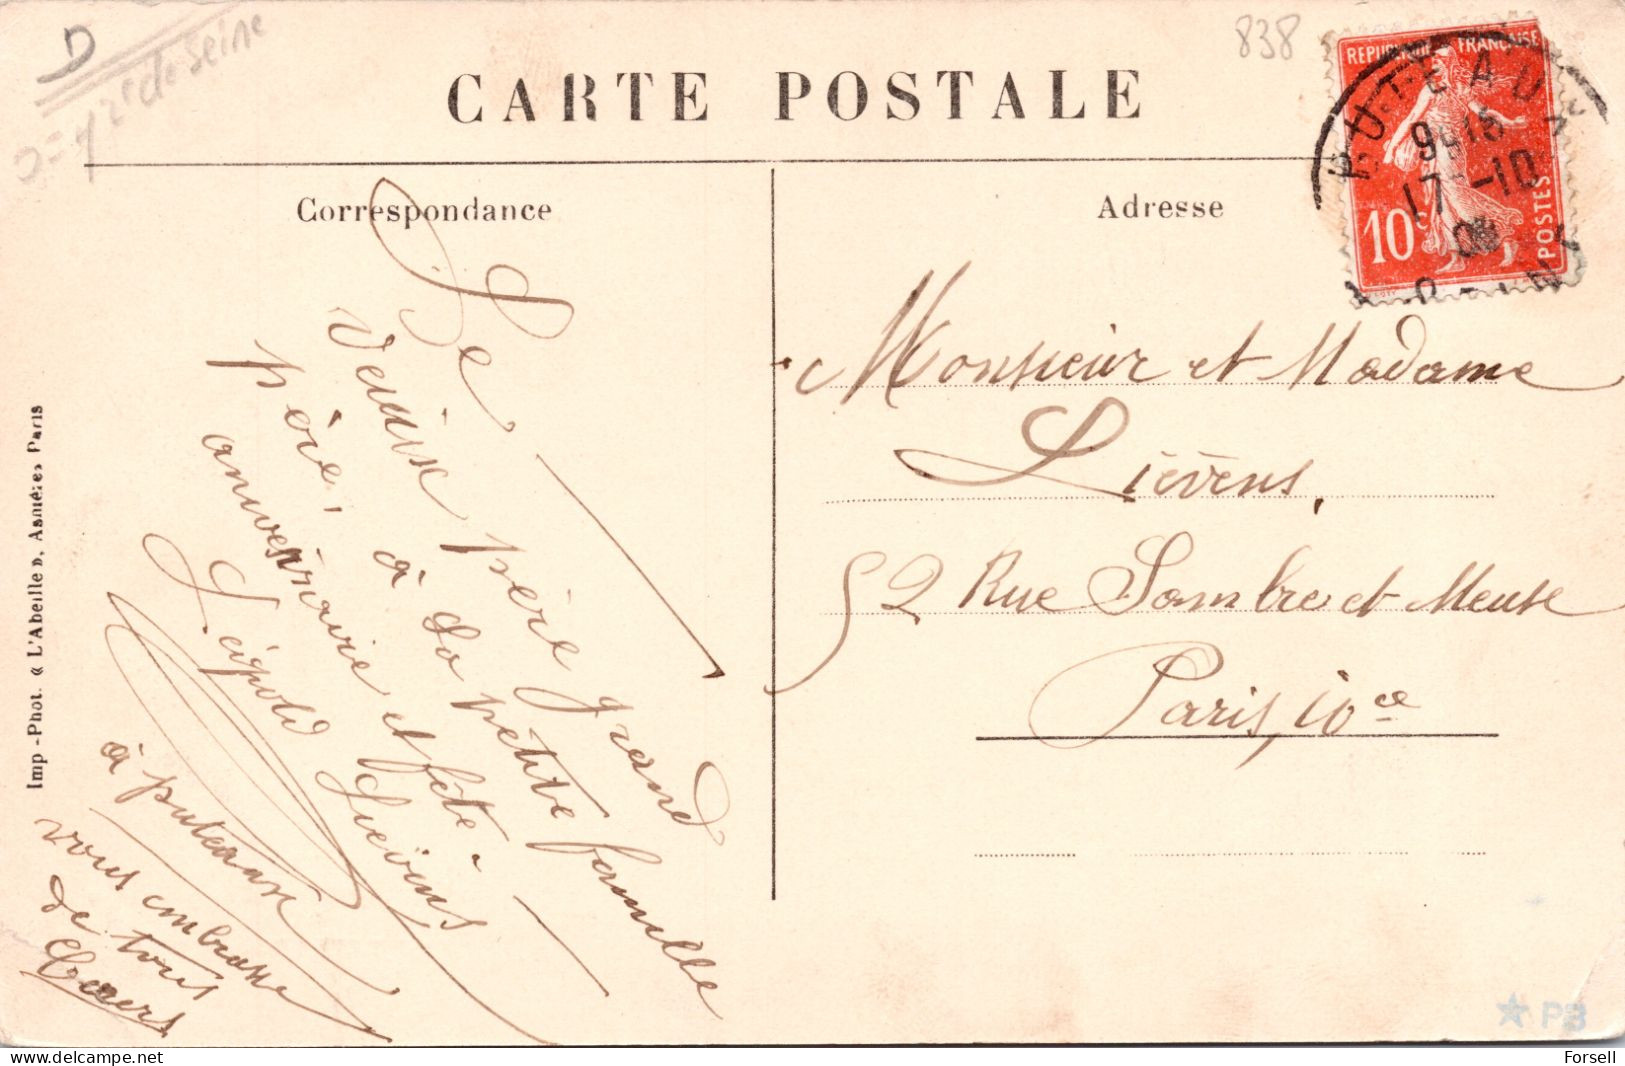 D
D = 92 r de Seine
838
CARTE POSTALE
Correspondance
Adresse
REPUBLIQUE FRANÇAISE
10c
POSTES
PUTEAUX
17-10
08
SEINE
Le
père grand
père, à la petite famille
anniversaire et fête
Léopold Lievens
à puteaux
vous embrasse
de tous
Cœurs
Monsieur et Madame
Liévens,
52 Rue Sambre et Meuse
Paris, 10ce
Imp-Phot. « L'Abeille », Asnières Paris
PB
Forsell
delcampe.net